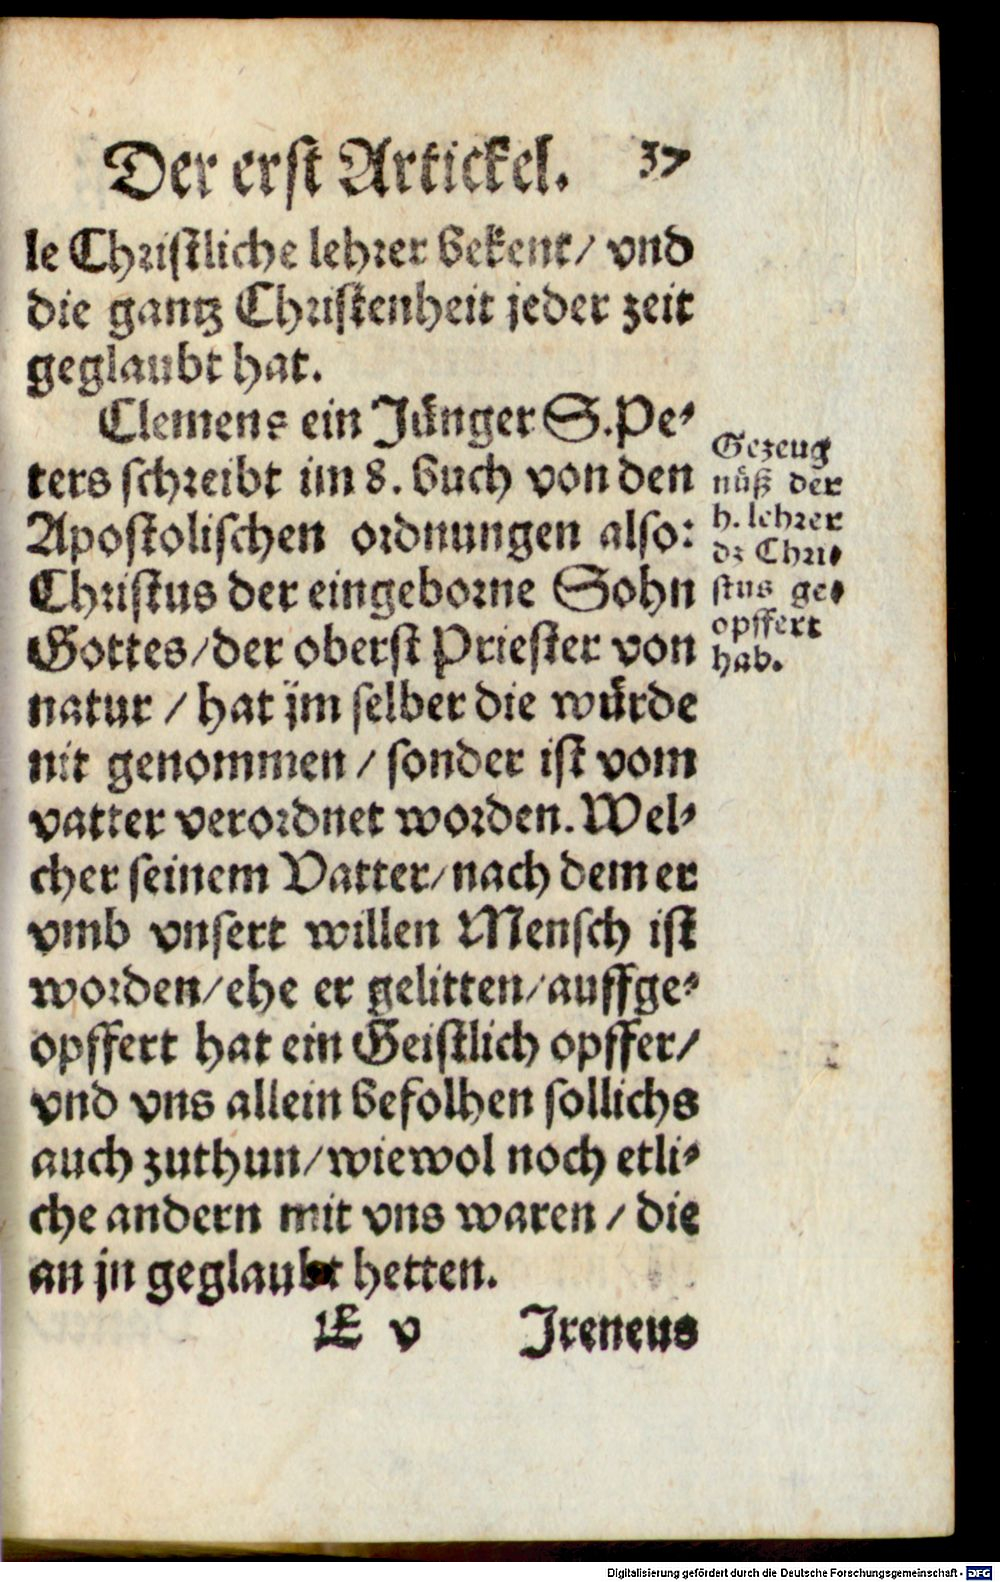 Der erst Artickel. 37
le Christliche lehrer bekent/ vnd
die gantz Christenheit jeder zeit
geglaubt hat.
Clemens ein Jünger S. Pe-
ters schreibt im 8. buch von den
Apostolischen ordnungen also:
Christus der eingeborne Sohn
Gottes/der oberst Priester von
natur / hat jm selber die würde
nit genommen / sonder ist vom
vatter verordnet worden. Wel-
cher seinem Vatter/nach dem er
vmb vnsert willen Mensch ist
worden/ehe er gelitten/auffge-
opffert hat ein Geistlich opffer/
vnd vns allein befolhen sollichs
auch zuthun/wiewol noch etli-
che andern mit vns waren / die
an jn geglaubt hetten.
E v Jreneus
Gezeug
nüß der
h. lehrer
dz Chri-
stus ge-
opffert
hab.
Digitalisierung gefördert durch die Deutsche Forschungsgemeinschaft - DFG